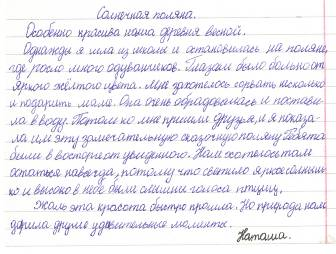 Солнечная поляна.
Особенно красива наша деревня весной.
Однажды я шла из школы и остановилась на поляне,
где росло много одуванчиков. Глазам было больно от
яркого жёлтого цвета. Мне захотелось сорвать несколько
и подарить маме. Она очень обрадовалась и постави-
ла в воду. Потом ко мне пришли друзья, и я показа-
ла им эту замечательную сказочную поляну. Ребята
были в восторге от увиденного. Нам хотелось там
остаться навсегда, потому что светило яркое солныш-
ко и высоко в небе были слышны голоса птиц.
Жаль эта красота быстро прошла. Но природа нам
дарила другие удивительные моменты.
Наташа.